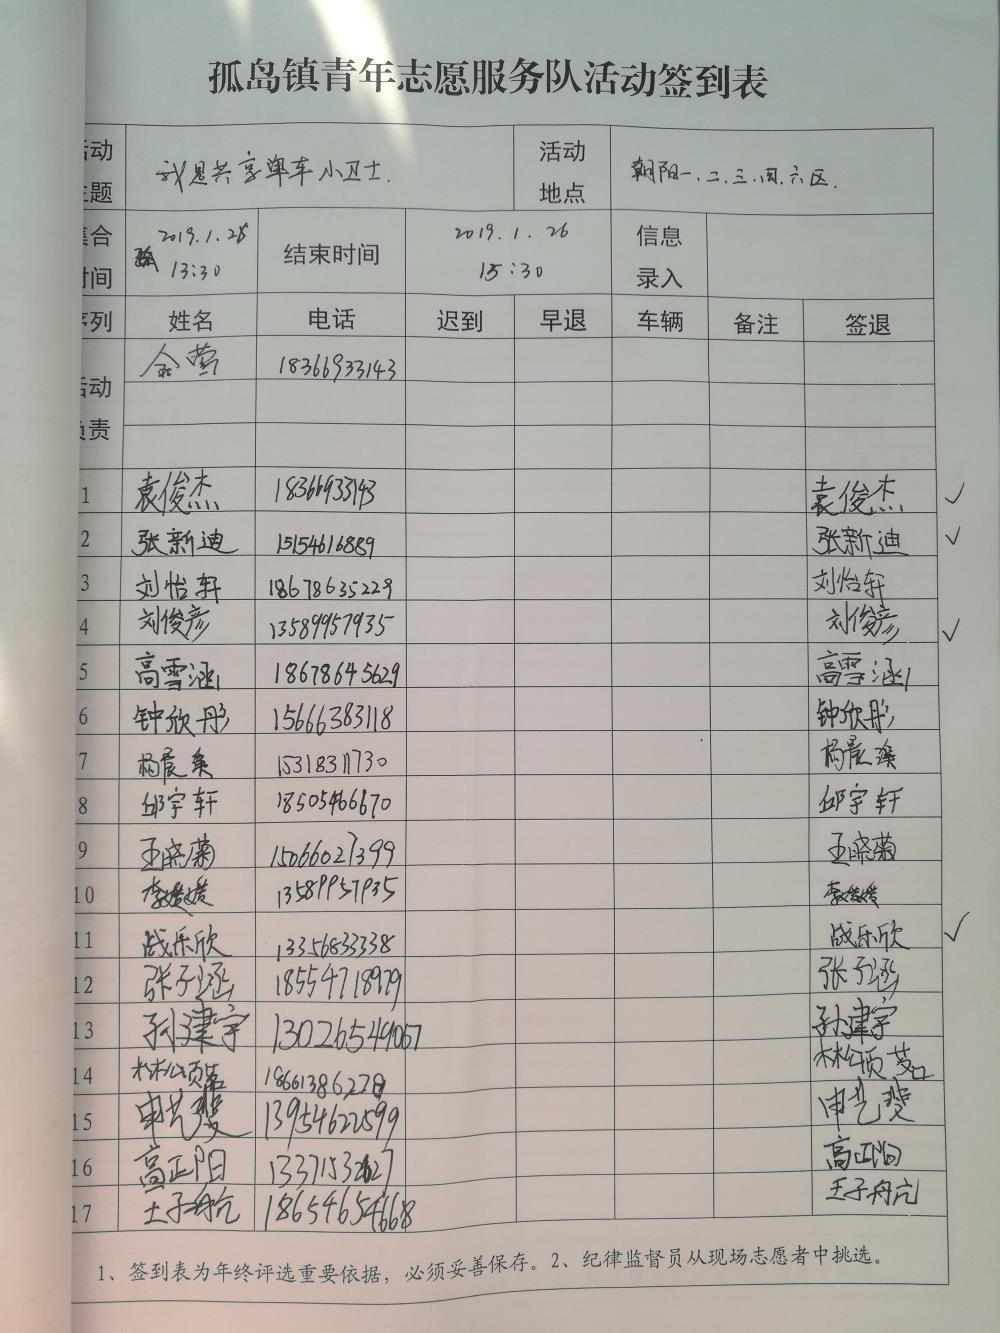 孤岛镇青年志愿服务队活动签到表
活动主题 我是共享单车小卫士. 活动地点 朝阳一.二.三.四.六区.
集合时间 2019.1.26 13:30 结束时间 2019.1.26 15:30 信息录入
序列 姓名 电话 迟到 早退 车辆 备注 签退
活动负责 18366933143
1 袁俊杰 18366933143 袁俊杰 ✓
2 张新迪 15154616889 张新迪 ✓
3 刘怡轩 18678635229 刘怡轩
4 刘俊彦 13589957935 刘俊彦 ✓
5 高雪涵 18678645629 高雪涵
6 钟欣彤 15666383118 钟欣彤
7 杨晨 15318311730 杨晨
8 邱宇轩 18505466670 邱宇轩
9 王晓菊 15066027399 王晓菊
10 李媛媛 13589957935 李媛媛
11 战乐欣 13356833338 战乐欣 ✓
12 张子涵 18554718979 张子涵
13 孙建宇 13026549067 孙建宇
14 林松颀 林松颀
15 申艺斐 13954622599 申艺斐
16 高正阳 高正阳
17 王子舟亢 18654654668 王子舟亢
1、签到表为年终评选重要依据，必须妥善保存。2、纪律监督员从现场志愿者中挑选。